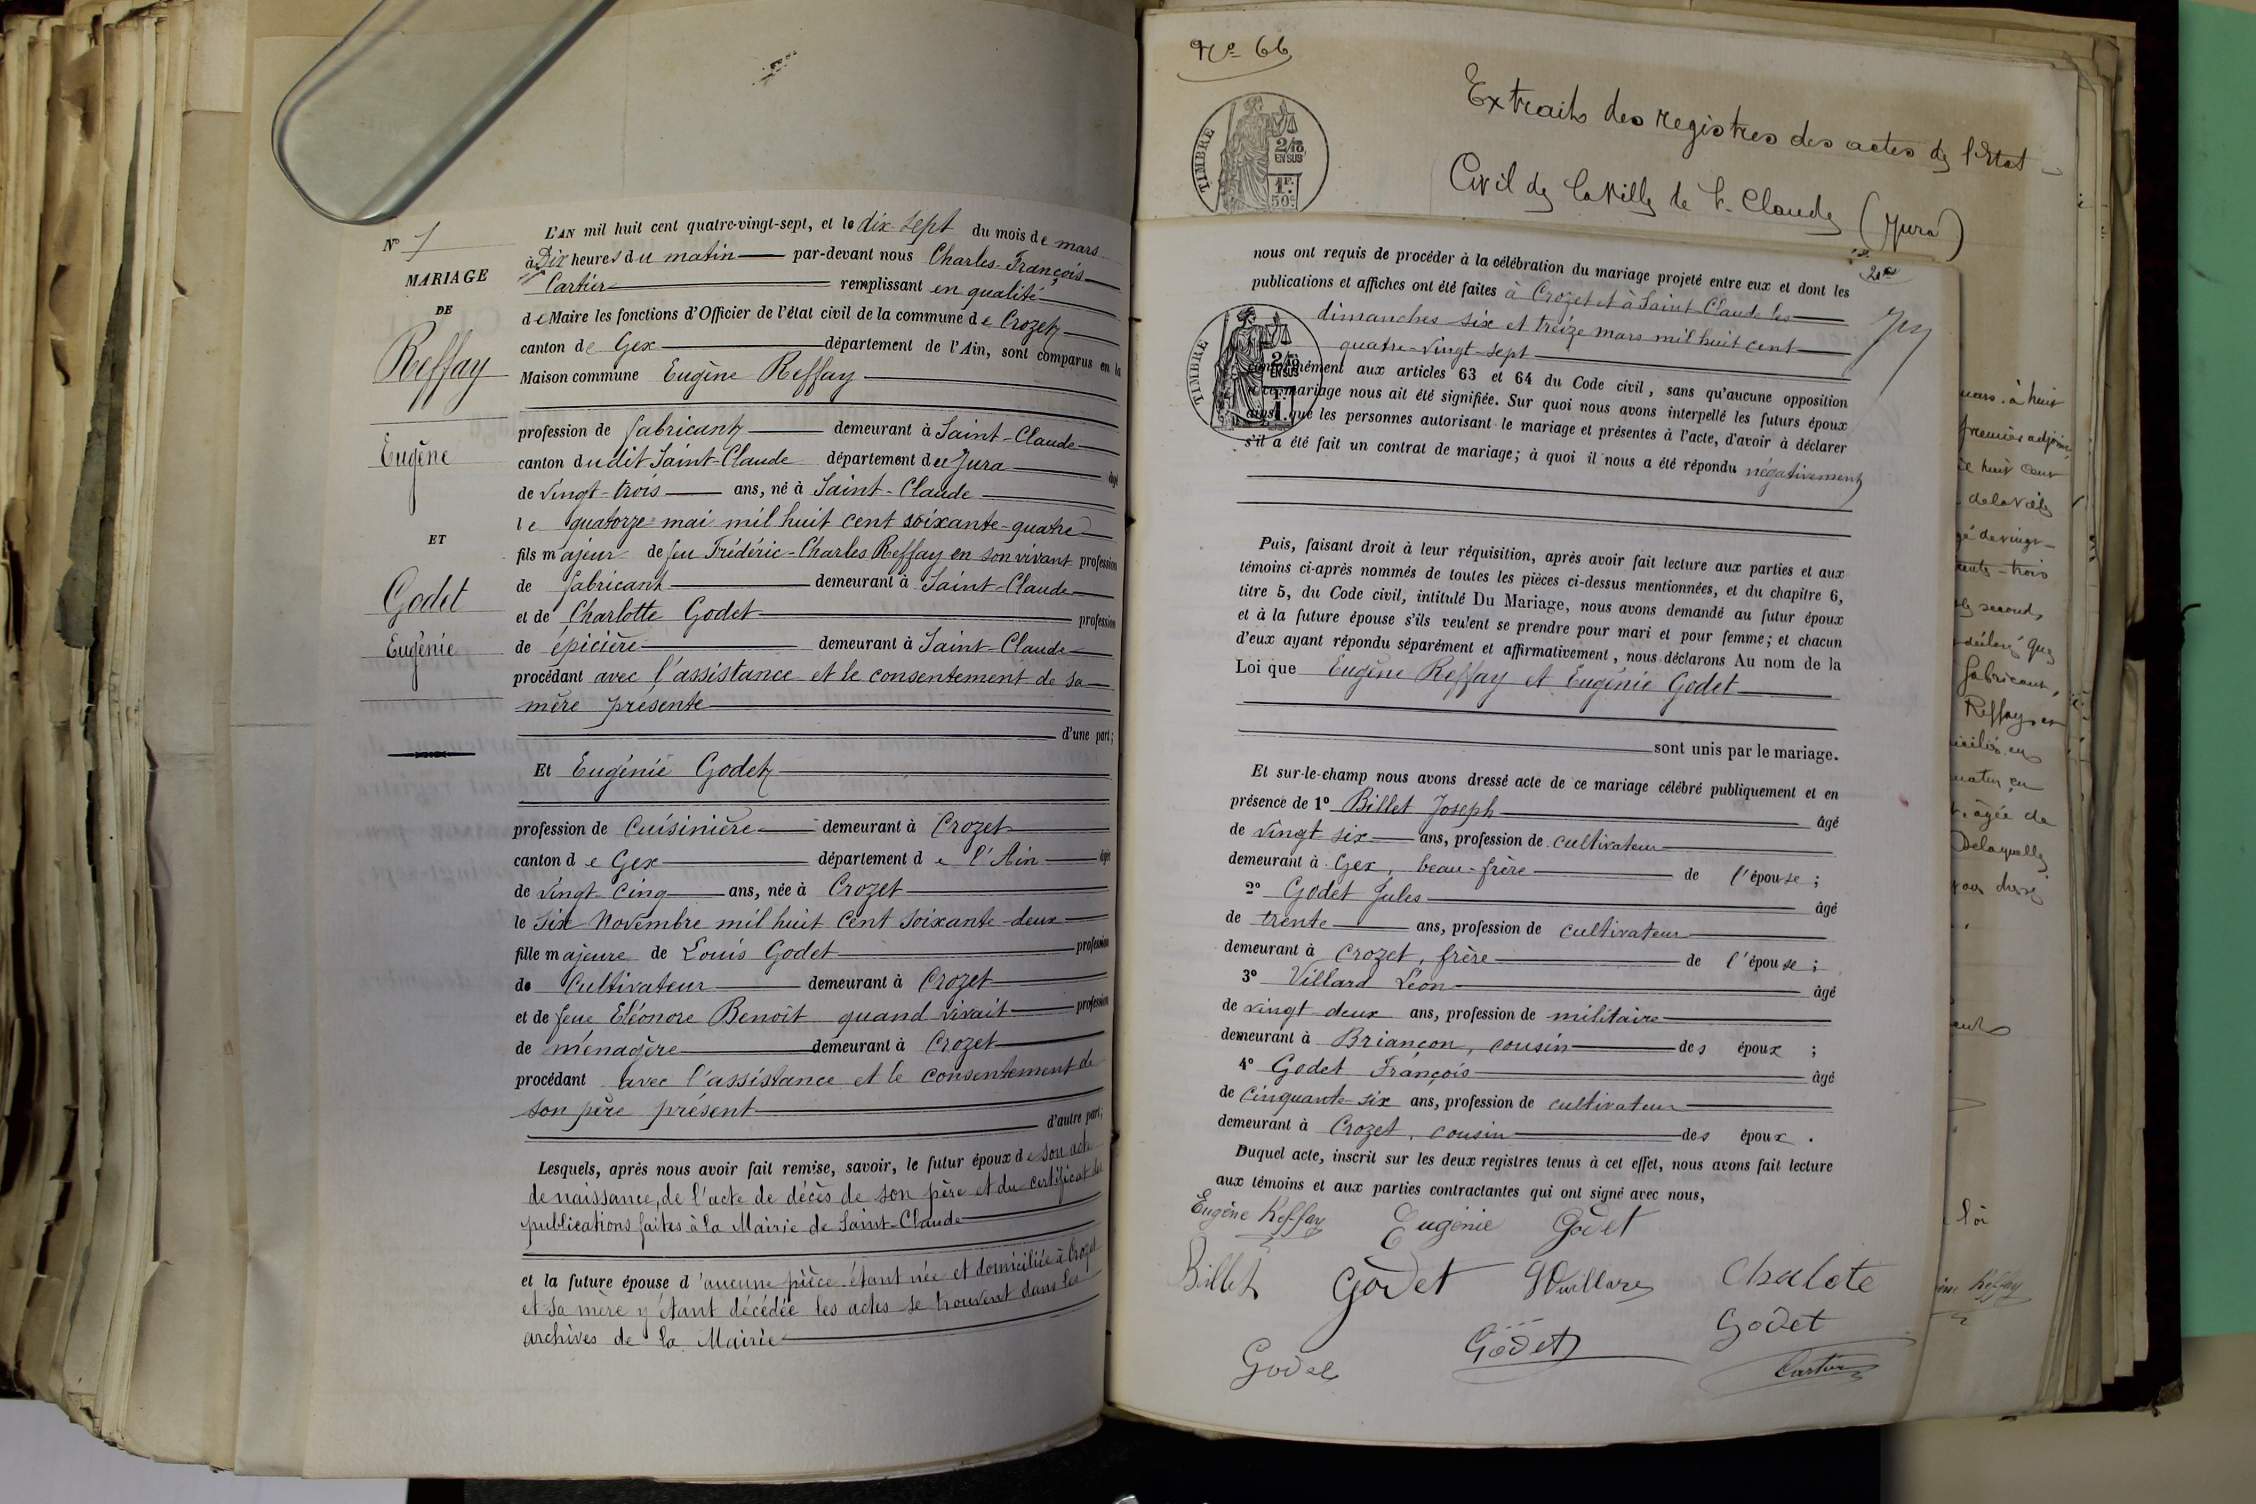 N° 1
MARIAGE
DE
Reffay
Eugène
ET
Godet
Eugénie
L'AN mil huit cent quatre-vingt-sept, et le dix-sept du mois de mars
à Dix heures du matin par-devant nous Charles-François
Cartier remplissant en qualité
de Maire les fonctions d'Officier de l'état civil de la commune de Crozet
canton de Gex département de l'Ain, sont comparus en la
Maison commune Eugène Reffay
profession de fabricant demeurant à Saint-Claude
canton dudit Saint-Claude département du Jura âgé
de vingt-trois ans, né à Saint-Claude
le quatorze mai mil huit cent soixante-quatre
fils majeur de feu Frédéric-Charles Reffay en son vivant profession
de fabricant demeurant à Saint-Claude
et de Charlotte Godet profession
de épicière demeurant à Saint-Claude
procédant avec l'assistance et le consentement de sa
mère présente
d'une part;
Et Eugénie Godet
profession de Cuisinière demeurant à Crozet
canton de Gex département de l'Ain âgée
de vingt cinq ans, née à Crozet
le six Novembre mil huit Cent soixante-deux
fille majeure de Louis Godet profession
de Cultivateur demeurant à Crozet
et de feue Eléonore Benoît quand vivait profession
de ménagère demeurant à Crozet
procédant avec l'assistance et le consentement de
son père présent
d'autre part;
Lesquels, après nous avoir fait remise, savoir, le futur époux de son acte
de naissance, de l'acte de décès de son père et du certificat des
publications faites à la Mairie de Saint-Claude
et la future épouse d'aucune pièce étant née et domiciliée à Crozet
et sa mère y étant décédée les actes se trouvent dans les
archives de la Mairie
N° 66
Extraits des registres des actes de l'Etat
Civil de la Ville de St. Claude (Jura)
TIMBRE
2/10 EN SUS
1F. 50c.
nous ont requis de procéder à la célébration du mariage projeté entre eux et dont les
publications et affiches ont été faites à Crozet et à Saint-Claude les
dimanches six et treize mars mil huit cent
quatre-vingt-sept
TIMBRE
2/10 EN SUS
conformément aux articles 63 et 64 du Code civil, sans qu'aucune opposition
à ce mariage nous ait été signifiée. Sur quoi nous avons interpellé les futurs époux
ainsi que les personnes autorisant le mariage et présentes à l'acte, d'avoir à déclarer
s'il a été fait un contrat de mariage; à quoi il nous a été répondu négativement
Puis, faisant droit à leur réquisition, après avoir fait lecture aux parties et aux
témoins ci-après nommés de toutes les pièces ci-dessus mentionnées, et du chapitre 6,
titre 5, du Code civil, intitulé Du Mariage, nous avons demandé au futur époux
et à la future épouse s'ils veulent se prendre pour mari et pour femme; et chacun
d'eux ayant répondu séparément et affirmativement, nous déclarons Au nom de la
Loi que Eugène Reffay et Eugénie Godet
sont unis par le mariage.
Et sur-le-champ nous avons dressé acte de ce mariage célébré publiquement et en
présence de 1° Billet Joseph âgé
de vingt six ans, profession de cultivateur
demeurant à Gex, beau-frère de l'épouse;
2° Godet Jules âgé
de trente ans, profession de cultivateur
demeurant à Crozet, frère de l'épouse;
3° Villard Léon âgé
de vingt deux ans, profession de militaire
demeurant à Briançon, cousin des époux;
4° Godet François âgé
de Cinquante-six ans, profession de cultivateur
demeurant à Crozet, cousin des époux.
Duquel acte, inscrit sur les deux registres tenus à cet effet, nous avons fait lecture
aux témoins et aux parties contractantes qui ont signé avec nous,
Eugène Reffay Eugénie Godet
Billet Godet Chalote
Godet Godet Godet
Cartier
mars à huit
premier adjoint
huit cent
de la ville
de vingt-
trois
second,
déclaré que
fabricant,
Reffay
âgée de
Delaquelle
loi
Reffay